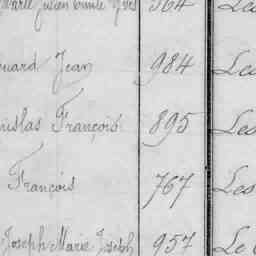 Marie Julien Émile Yves 564 Les
ouard Jean 984 Les
nislas François 895 Les
François 767 Les
Joseph Marie Joseph 957 Le